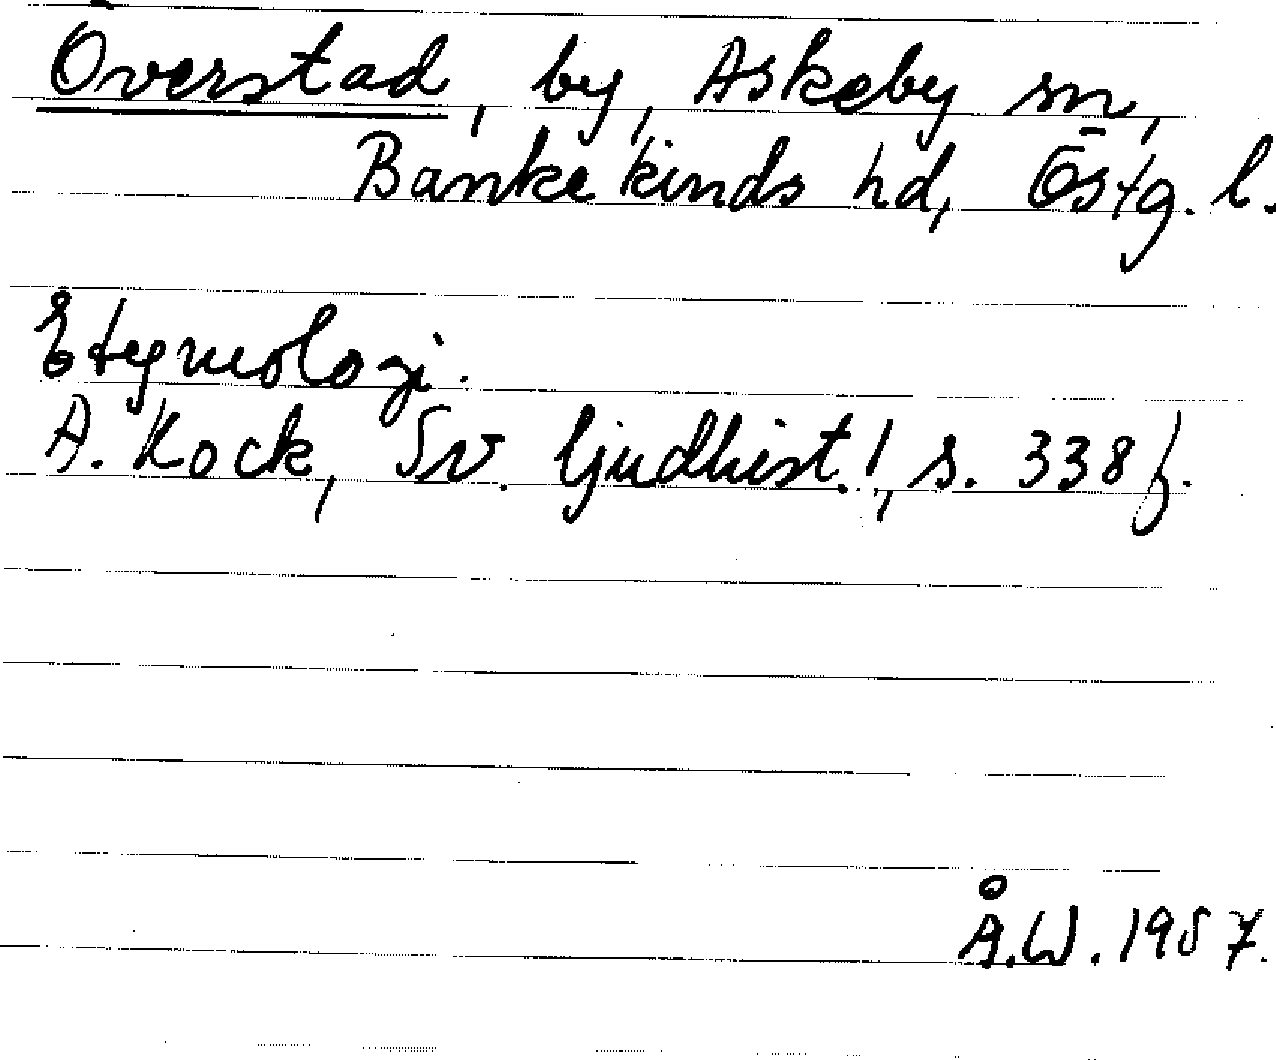 Överstad, by, Askeby sn,
Bankekinds hd, Östg. l.
Etymologi.
A. Kock, Sv. ljudhist. 1, s. 338 f.
Å.W. 1957.